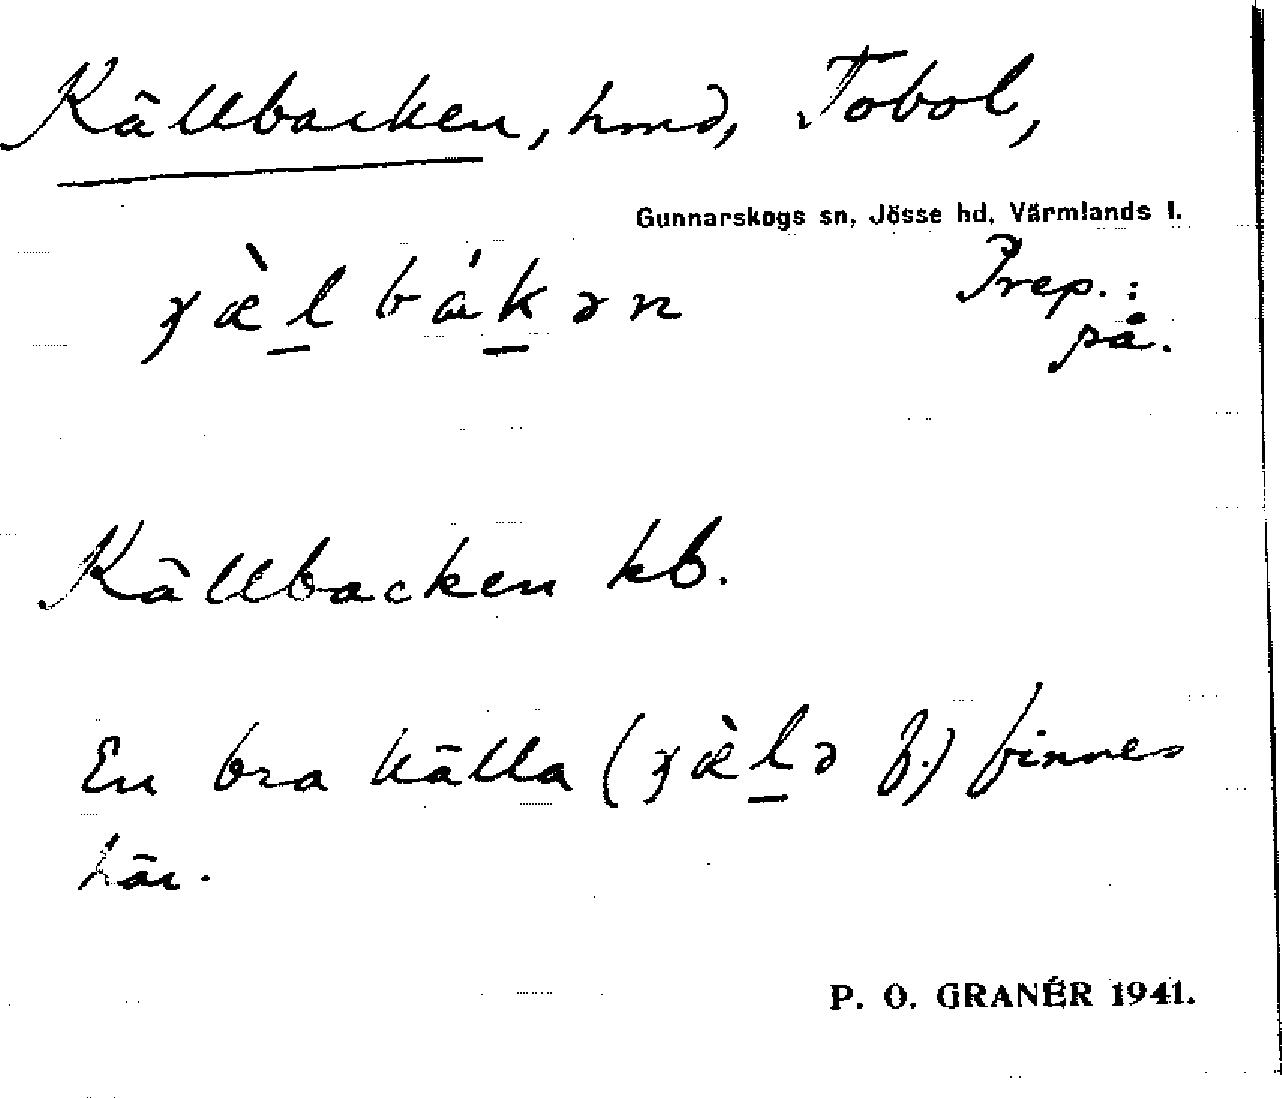 Källbacken, hmd, Tobol,
Gunnarskogs sn, Jösse hd, Värmlands l.
ɣæ̀l̲ bák̲ən Prep.:
på.
Källbacken kb.
En bra källa (ɣæ̀l̲ə f.) finnes
här.
P. O. GRANÉR 1941.